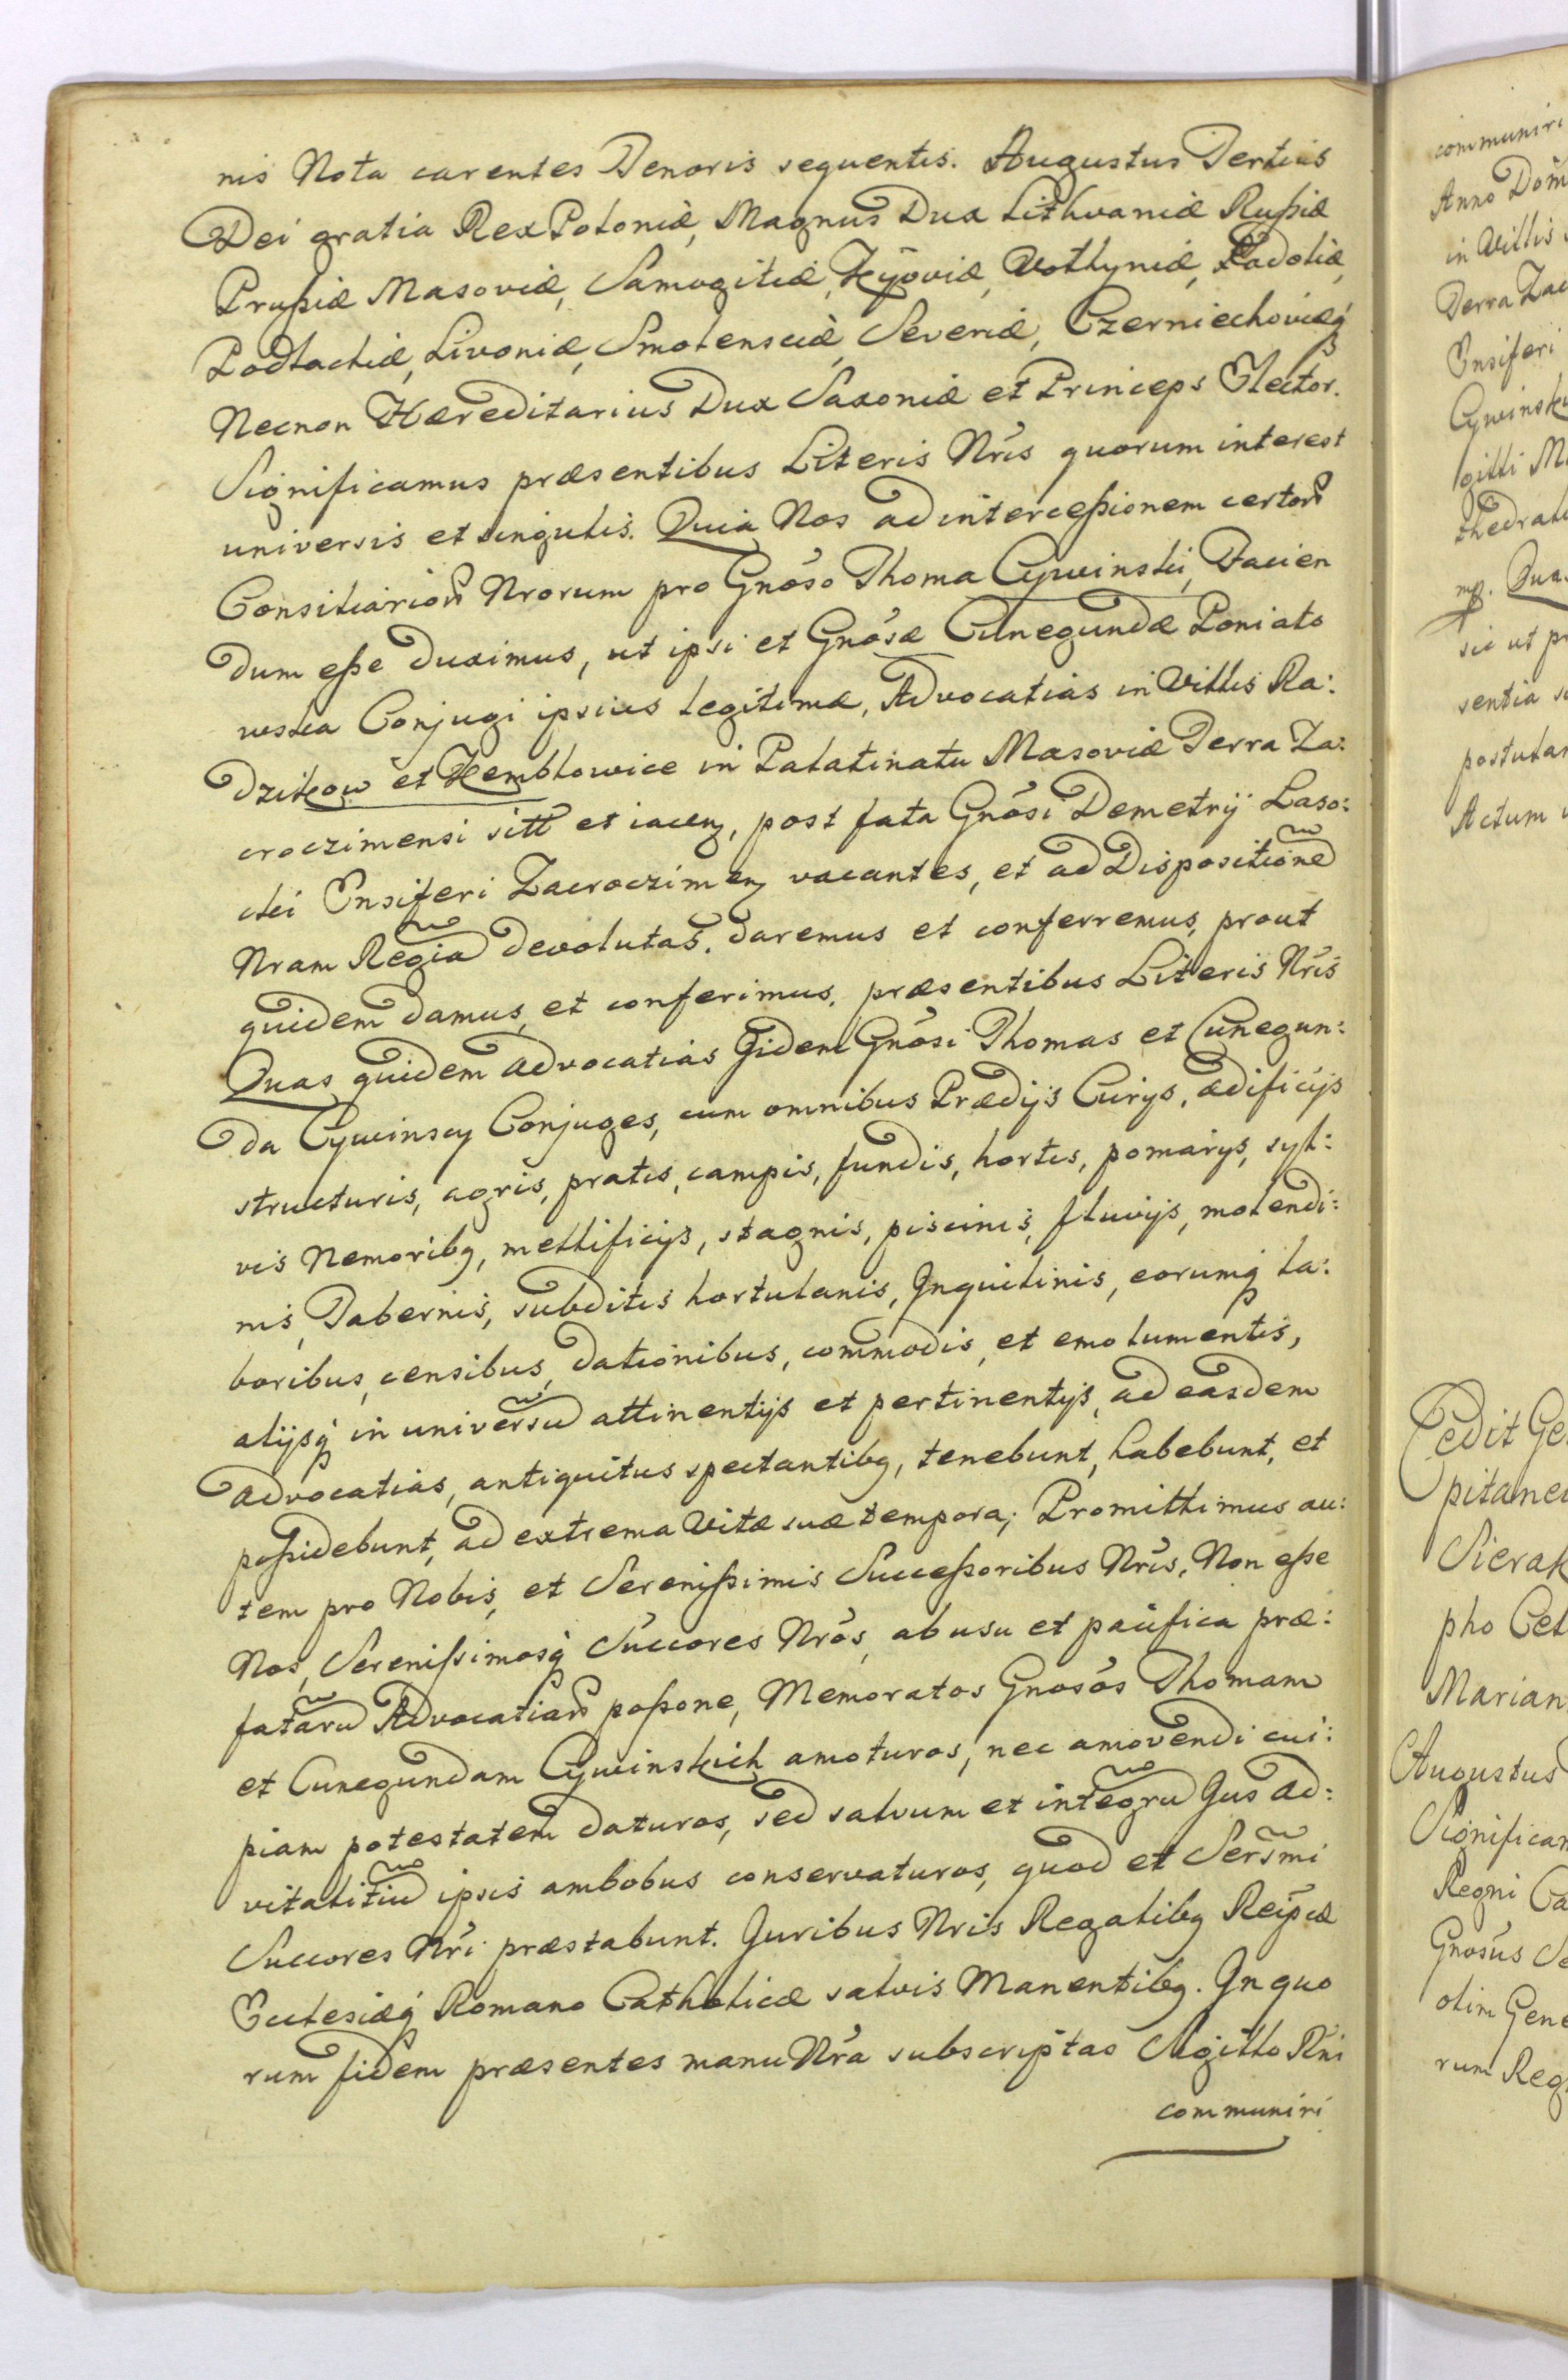 nis Nota carentes Tenoris sequentis. Augustus Tertius
Dei gratia Rex Poloniæ, Magnus Dux Lithvaniæ Rußiæ
Prußiæ Masoviæ, Samogitiæ, Kijoviæ, Volhyniæ, Podoliæ,
Podlachiæ, Livoniæ, Smolensciæ, Severiæ, Czerniechoviæq́
Necnon Hæreditarius Dux Saxoniæ et Princeps Elector.
Significamus præsentibus Literis Nr̃is quorum interest
universis et singulis. Quia Nos ad interceßionem certorũ
Consiliariorũ Nrorum pro Gnõso Thoma Cywinski, Facien
dum eße duximus, ut ipsi et Gnõsæ Cunegundæ Poniato
wska Conjugi ipsius legitimæ, Advocatias in Villis Ra:
dzikow et Kemblowice in Palatinatu Masoviæ Terra Za:
croczimensi sitt et iacen, post fata Gnõsi Demetrij Laso:
cki Ensiferi Zacroczimen vacantes, et ad Dispositionẽ
Nram Regiã devolutas, daremus et conferremus, prout
quidem damus, et conferimus, præsentibus Literis Nr̃is
Quas quidem advocatias Jidem Gnõsi Thomas et Cunegun:
da Cywinscy Conjuges, cum omnibus Prædijs Curijs, ædificijs
structuris, agris, pratis, campis, fundis, hortis, pomarijs, syl:
vis Nemoribq, mellificijs, stagnis, piscinis, fluvijs, molendi:
nis, Tabernis, subditis hortulanis, Jnquilinis, eorumq́ la:
boribus, censibus, dationibus, commodis, et emolumentis,
alijsq́ in universũ attinentijs et pertinentijs, ad easdem
advocatias, antiquitus spectantibq, tenebunt, habebunt, et
poßidebunt, ad extrema vitæ suæ tempora; Promittimus au:
tem pro Nobis, et Serenißimis Succeßoribus Nr̃is, Non eße
Nos, Serenißimosq́ Succores Nr̃os, ab usu et pacifica præ:
fatarũ Advocatiarũ poßone, Memoratos Gnosõs Thomam
et Cunegundam Cywinskich amoturos, nec amovendi cui:
piam potestatem daturos, sed salvum et integrũ Jus ad:
vitalitiũ ipsis ambobus conservaturos, quod et Serr̃mi
Succores Nr̃i præstabunt. Juribus Nris Regalibq Reipcæ
Ecclesiæq́ Romano Catholicæ salvis Manentibq. Jn quo
rum fidem præsentes manu Nr̃a subscriptas Sigillo Rñi
communiri
communiri
Anno Dom̃
in Villis
Terra Zac
Ensiferi
Cywinsk
gilli M
thedral
mp. Qua
sic ut p
sentia s
postulan
Actum
Cedit Ge
pitanei
Sierak
pho Cet
Marian
Augustus
Significam
Regni Ca
Gnosus Se
olim Gene
rum Reg